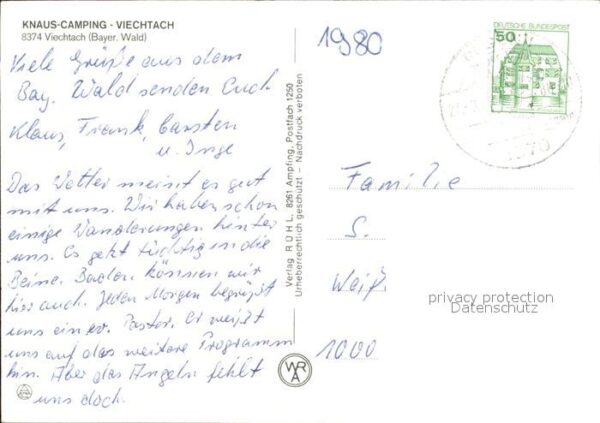 KNAUS-CAMPING - VIECHTACH
8374 Viechtach (Bayer. Wald)
Viele Grüße aus dem
Bay. Wald senden Euch
Klaus, Frank, Carsten
u. Inge
Das Wetter meint es gut
mit uns. Wir haben schon
einige Wanderungen hinter
uns. Es geht tüchtig in die
Beine. Baden können wir
hier auch. Jeden Morgen begrüßt
uns ein ev. Pastor. Er weist
uns auf das weitere Programm
hin. Aber das Angeln fehlt
uns doch.
Verlag RÜHL, 8261 Ampfing, Postfach 1250
Urheberrechtlich geschützt - Nachdruck verboten
WRA
1980
DEUTSCHE BUNDESPOST
50
Familie
S.
privacy protection
Datenschutz
1000